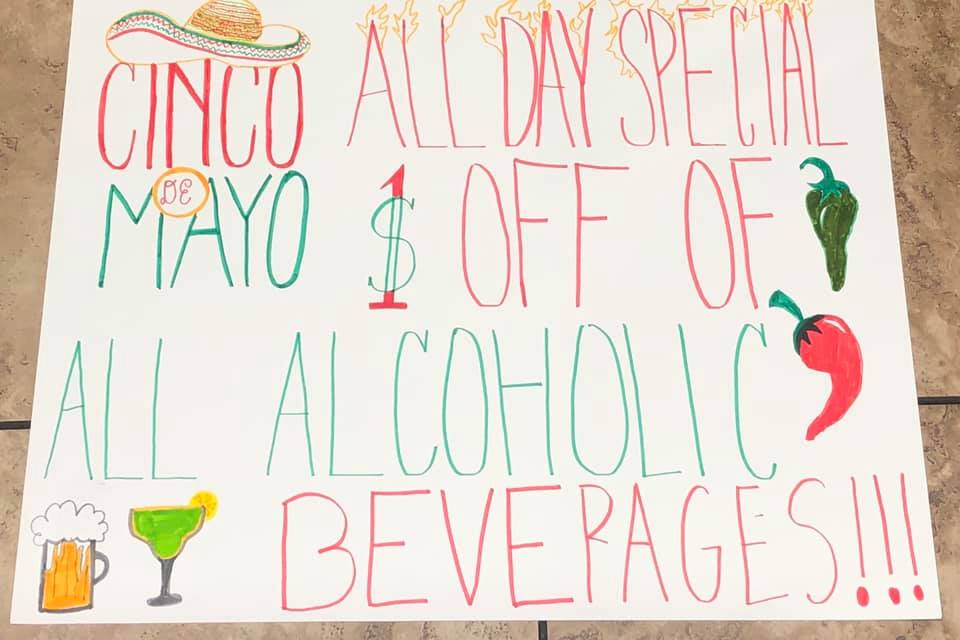 CINCO
DE
MAYO
ALL DAY SPECIAL
$1 OFF OF
ALL ALCOHOLIC
BEVERAGES!!!